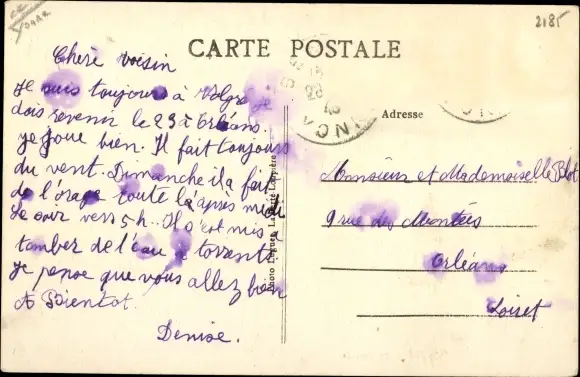 2185
CARTE POSTALE
Chère voisin
Je suis toujours à Volgré je
dois revenir le 23 à Orléans.
je joue bien. Il fait toujours
du vent. Dimanche il a fait
de l'orage toute l'après midi
le soir vers 5h. Il s'est mis
tomber de l'eau a torrents
Je pense que vous allez bien
A Bientot.
Denise.
Adresse
Monsieur et Mademoiselle Blot
9 rue des Montées
Orléans
Loiret